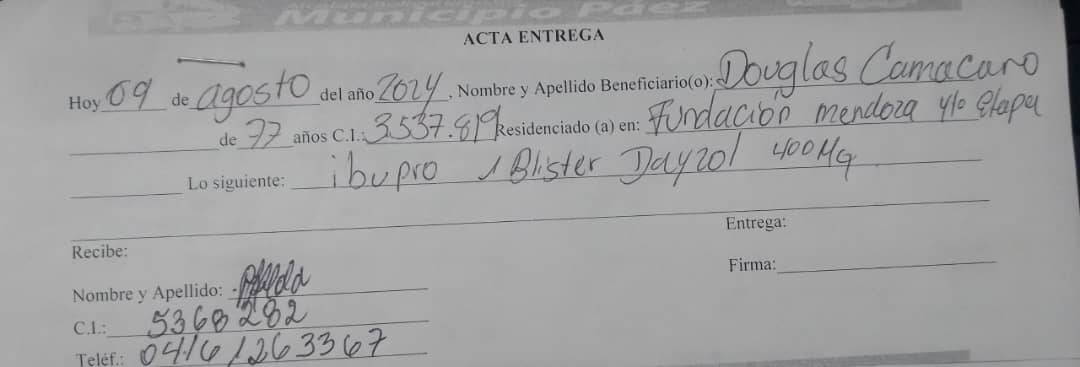 Municipio Páez
ACTA ENTREGA
Hoy 09 de agosto del año 2024, Nombre y Apellido Beneficiario(o): Douglas Camacaro
de 77 años C.I.: 3537.819 Residenciado (a) en: Fundación mendoza 4to etapa
Lo siguiente: ibupro 1 Blister Dayzol 400Mg
Recibe: Entrega:
Nombre y Apellido: Firma:
C.I.: 5368282
Teléf.: 0416 1263367